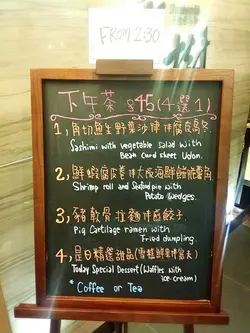 FROM 2:30
下午茶 $45(4選1)
1, 角切魚生野菜沙律伴腐皮烏冬.
Sashimi with vegetable Salad with
Bean Curd sheet Udon.
2, 鮮蝦腐皮卷伴大長海鮮餅脆薯角
Shrimp roll and Seafood pie with
Potato Wedges.
3, 豬軟骨拉麵伴煎餃子.
Pig Cartilage ramen with
Fried dumpling.
4, 是日精選甜品(雪糕鮮果窩夫)
Today Special Dessert (Waffles with
ice-cream)
* Coffee or Tea